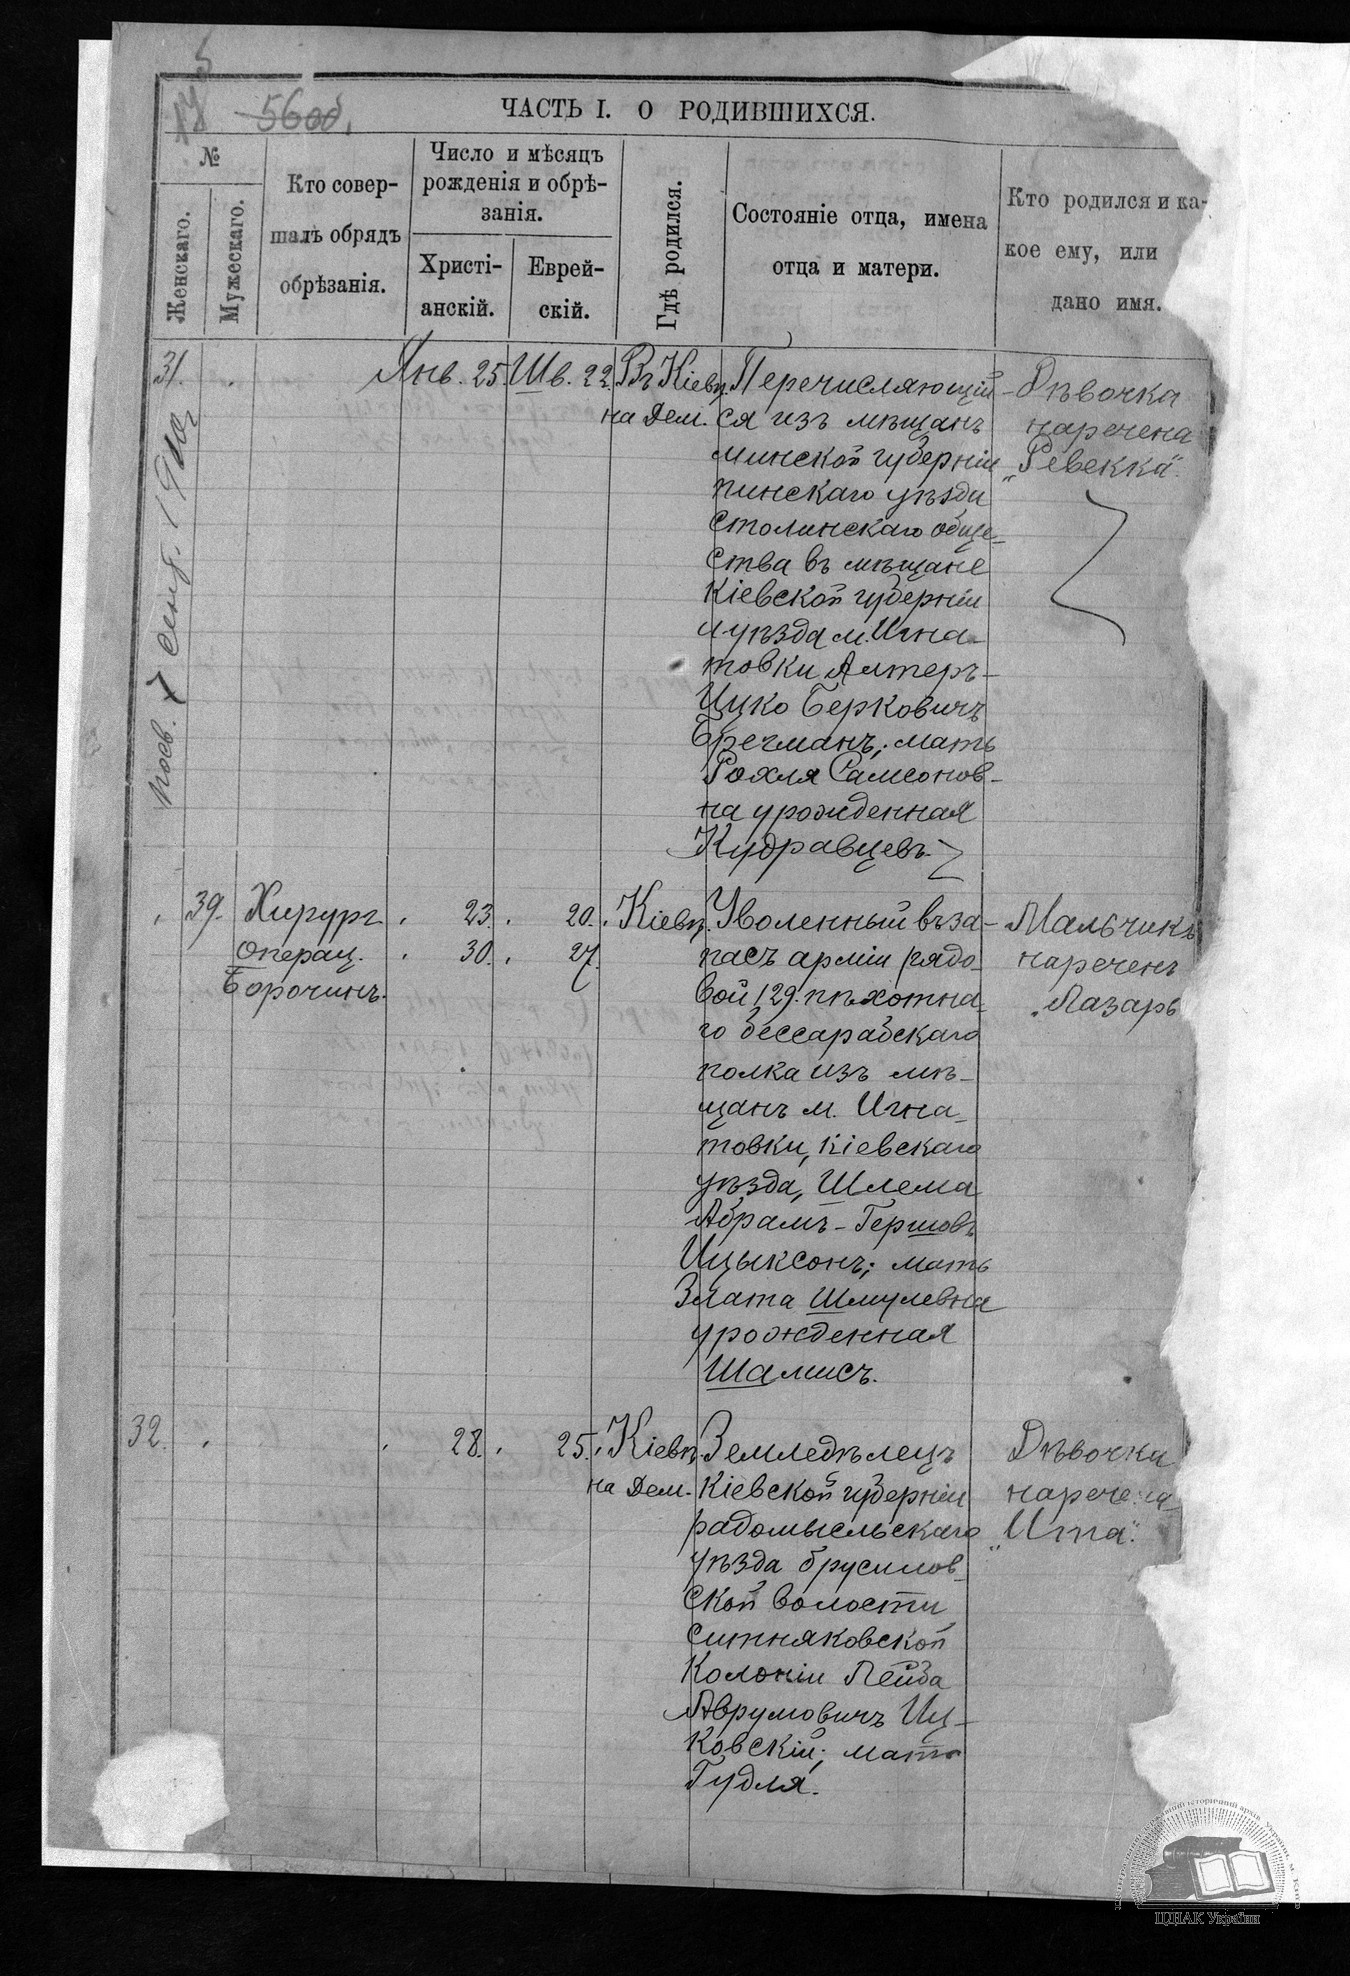 5
ЧАСТЬ I. О РОДИВШИХСЯ.
№
Женскаго.
Мужескаго.
Кто совер-
шалъ обрядъ
обрѣзанія.
Число и мѣсяцъ
рожденія и обрѣ-
занія.
Христі-
анскій.
Еврей-
скій.
Гдѣ родился.
Состояніе отца, имена
отца и матери.
Кто родился и ка-
кое ему, или
дано имя.
31.
Янв. 25.
Шв. 22.
Въ Кіевѣ.
на Дем.
Перечисляющій-
ся изъ мѣщанъ
минской губерніи
пинскаго уѣзда
столинскаго обще-
ства въ мѣщане
Кіевской губерніи
и уѣзда м. Игна-
товки Алтеръ-
Ицко Берковичъ
Брегманъ; мать
Рохля Самсонов-
на урожденная
Кудравцевъ
Дѣвочка
наречена
"Ревекка".
7 сент. 1910г
39.
Хирург
Операц.
Борочинъ.
23.
20.
30.
27.
Кіевѣ.
Уволенный въ за-
пасъ арміи рядо-
вой 129. пѣхотна-
го бессарабскаго
полка изъ мѣ-
щанъ м. Игна-
товки, Кіевскаго
уѣзда, Шлема
Абрамъ-Гершовъ
Ицыксонъ; мать
Злата Шмулевна
урожденная
Шамисъ.
Мальчикъ
нареченъ
"Лазарь
32.
28.
25.
Кіевѣ.
на Дем.
Земледѣлецъ
Кіевской губерніи
радомысльскаго
уѣзда брусилов-
ской волости
ситняковской
Колоніи Лейба
Аврумовичъ Иц-
ковскій; мать
Гудля.
Дѣвочка
наречена
"Ита".
ЦДІАК України